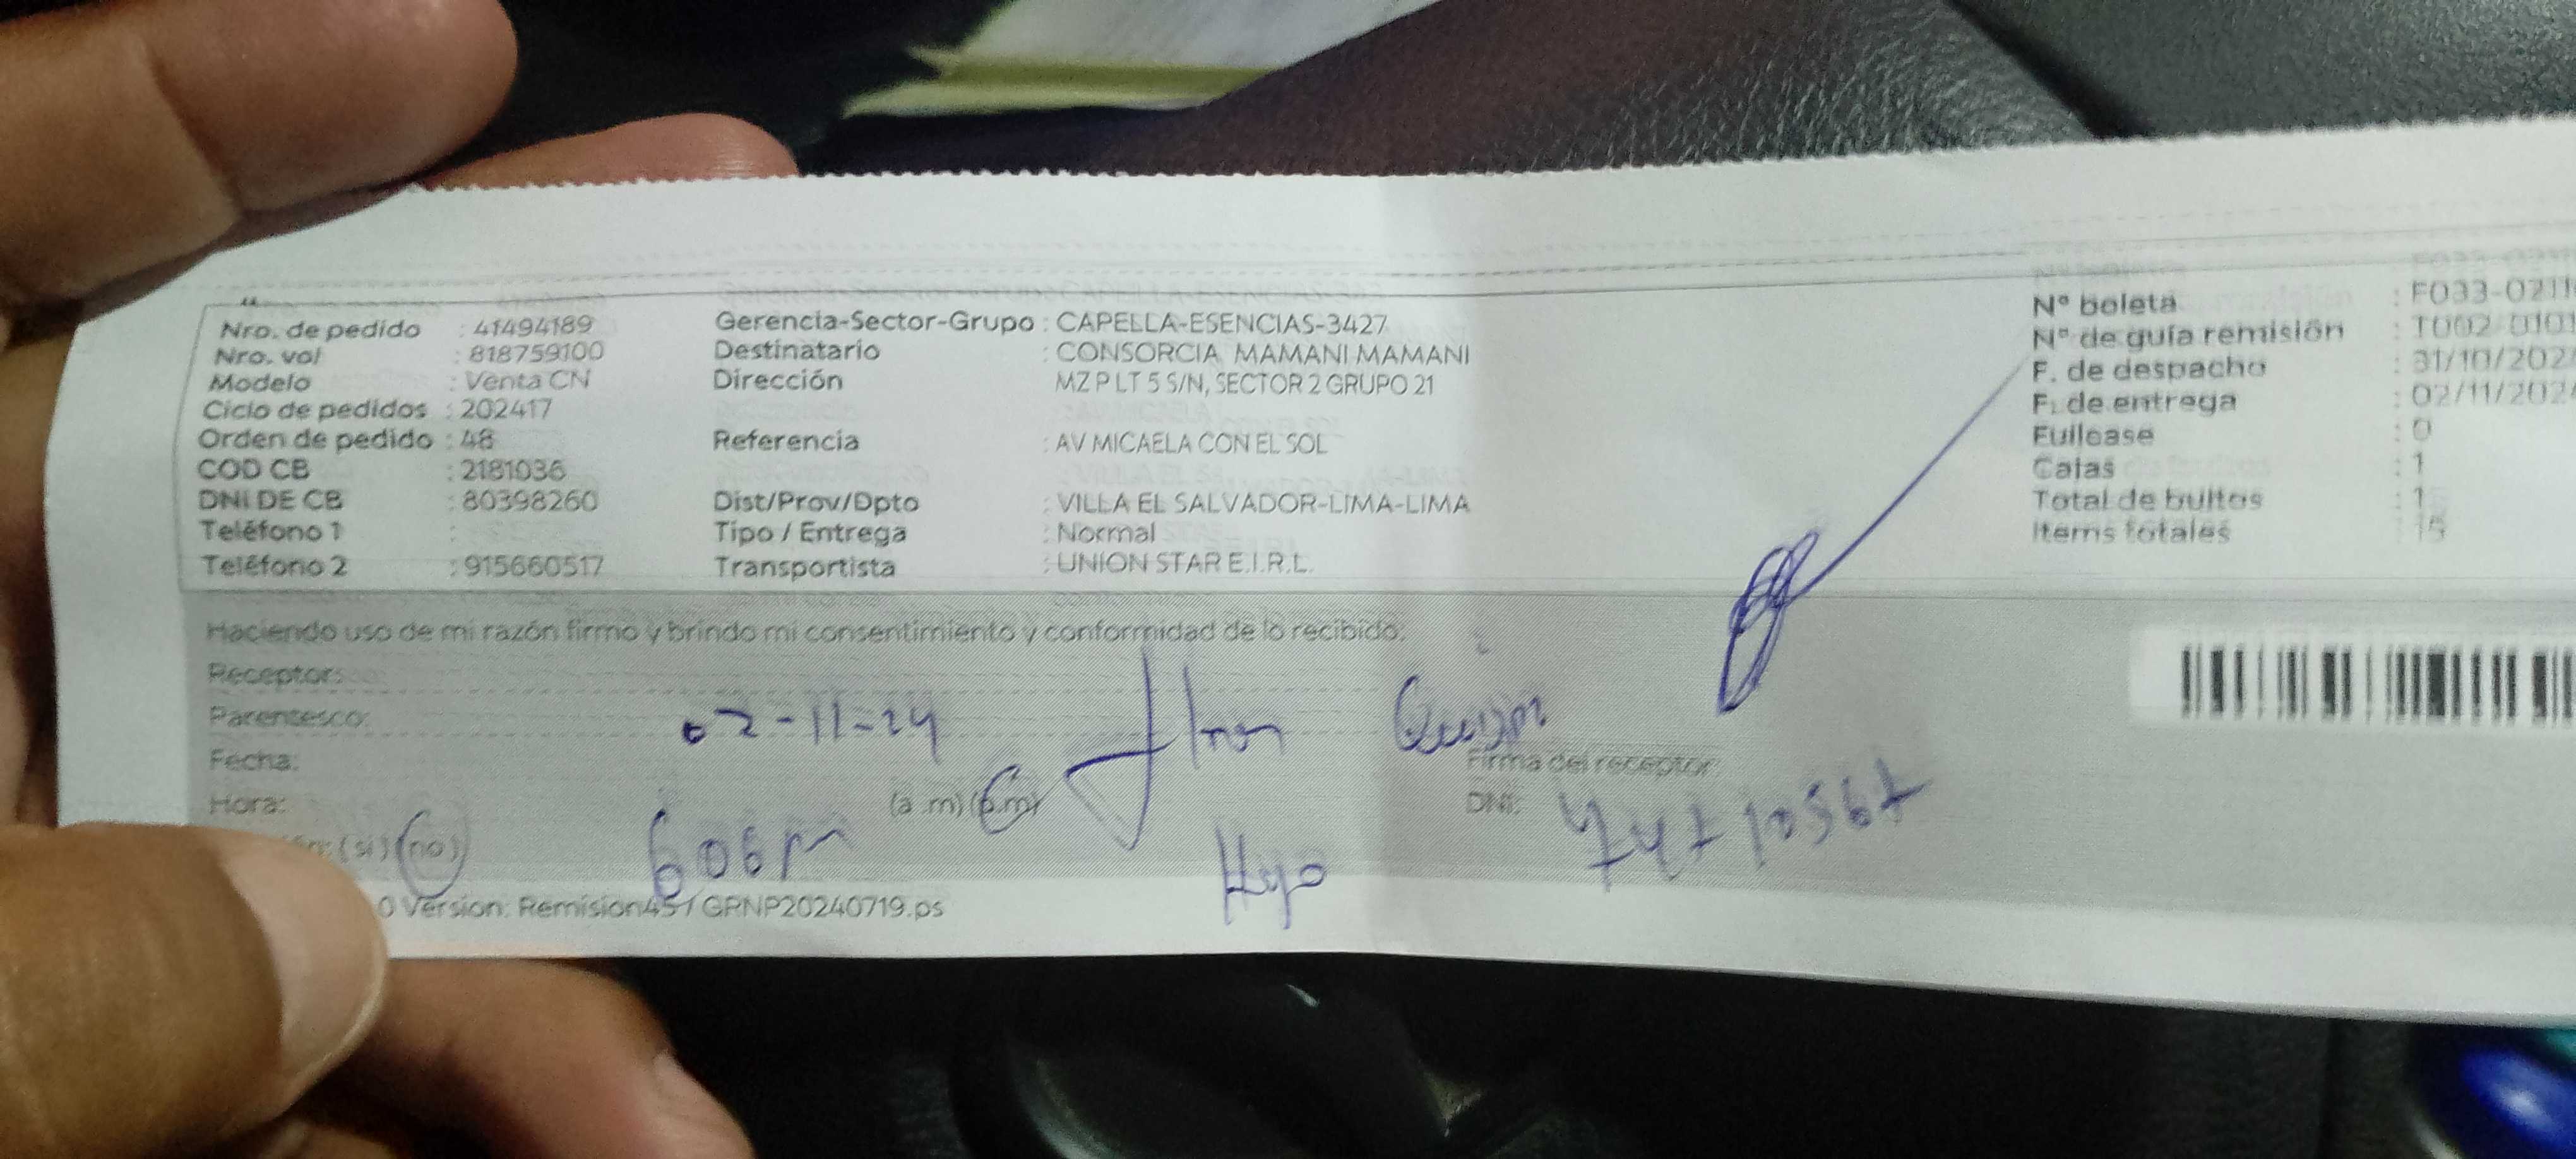 Nro. de pedido : 41494189
Nro. vol : 818759100
Modelo : Venta CN
Ciclo de pedidos : 202417
Orden de pedido : 48
COD CB : 2181036
DNI DE CB : 80398260
Teléfono 1 :
Teléfono 2 : 915660517
Gerencia-Sector-Grupo : CAPELLA-ESENCIAS-3427
Destinatario : CONSORCIA MAMANI MAMANI
Dirección MZ P LT 5 S/N, SECTOR 2 GRUPO 21
Referencia : AV MICAELA CON EL SOL
Dist/Prov/Dpto : VILLA EL SALVADOR-LIMA-LIMA
Tipo / Entrega : Normal
Transportista : UNION STAR E.I.R.L.
N° boleta : F033-0211
N° de guía remisión : T002-0101
F. de despacho : 31/10/202
F. de entrega : 02/11/202
Fullcase : 0
Cajas : 1
Total de bultos : 1
Items totales : 15
Haciendo uso de mi razón firmo y brindo mi consentimiento y conformidad de lo recibido.
Receptor:
Parentesco:
02-11-24
Fecha:
Firma del receptor
Hora: (a .m) (p.m)
DNI:
(si) (no)
606 pm
Hijo
0 Version: Remision45 / GRNP20240719.ps